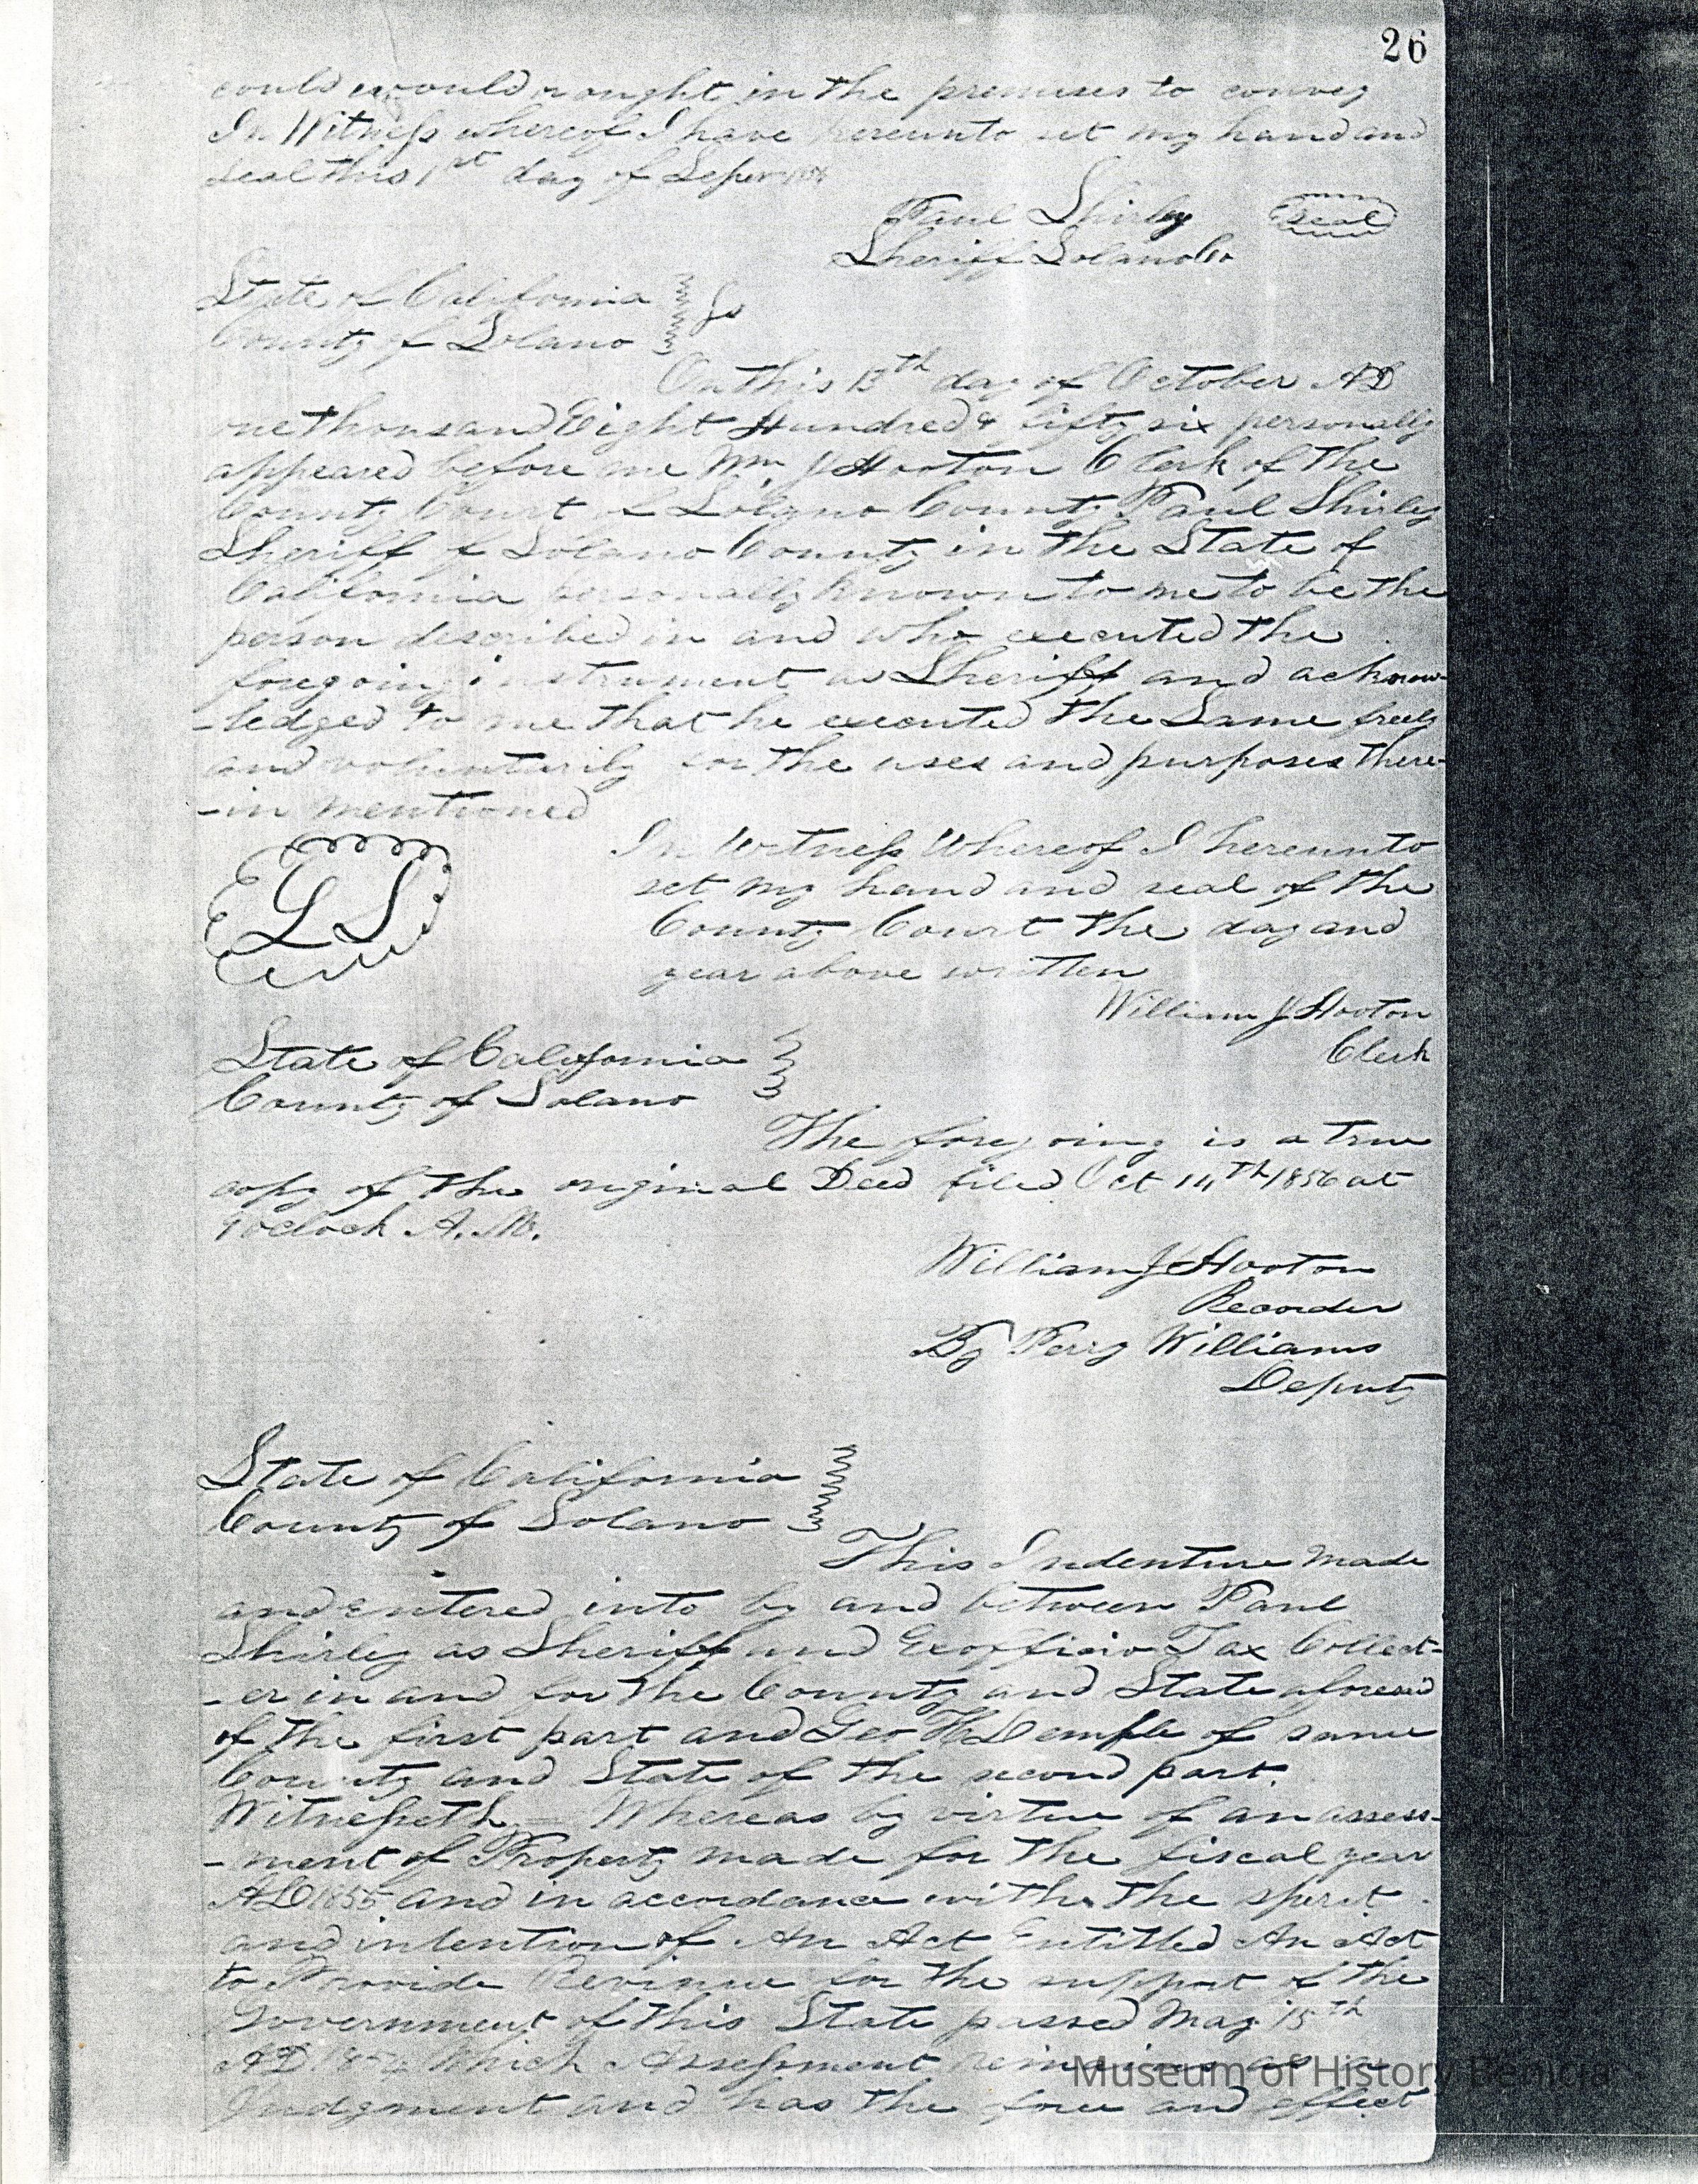 26
could would or ought in the premises to convey
In Witness whereof I have hereunto set my hand and
seal this 1st day of
Paul Shirley seal
Sheriff Solano Co
State of California
County of Solano Ss
On this 13th day of October AD
one thousand Eight Hundred & fifty six personally
appeared before me Wm J Hooton Clerk of the
County Court of Solano County Paul Shirley
Sheriff of Solano County in the State of
California personally known to me to be the
person described in and who executed the
foregoing instrument as Sheriff and acknow-
-ledged to me that he executed the Same freely
and voluntarily for the uses and purposes there-
-in mentioned
L S
In Witness Whereof I hereunto
set my hand and seal of the
County Court the day and
year above written
William J Hooton
Clerk
State of California
County of Solano
The foregoing is a true
copy of the original Deed filed Oct 14th 1856 at
9 oclock A.M.
William J Hooton
Recorder
By Perry Williams
Deputy
State of California
County of Solano
This Indenture made
and entered into by and between Paul
Shirley as Sheriff and Exofficio Tax Collect-
-er in and for the County and State aforesaid
of the first part and Geo of same
County and State of the second part.
Witnesseth – Whereas by virtue of an assess-
-ment of Property made for the fiscal year
AD 1855 and in accordance with the spirit
and intention of An Act Entitled An Act
to Provide Revinue for the support of the
Government of this State passed May 15th
AD Which Assessment remains as a
Judgment and has the force and effect
Museum of History Benicia